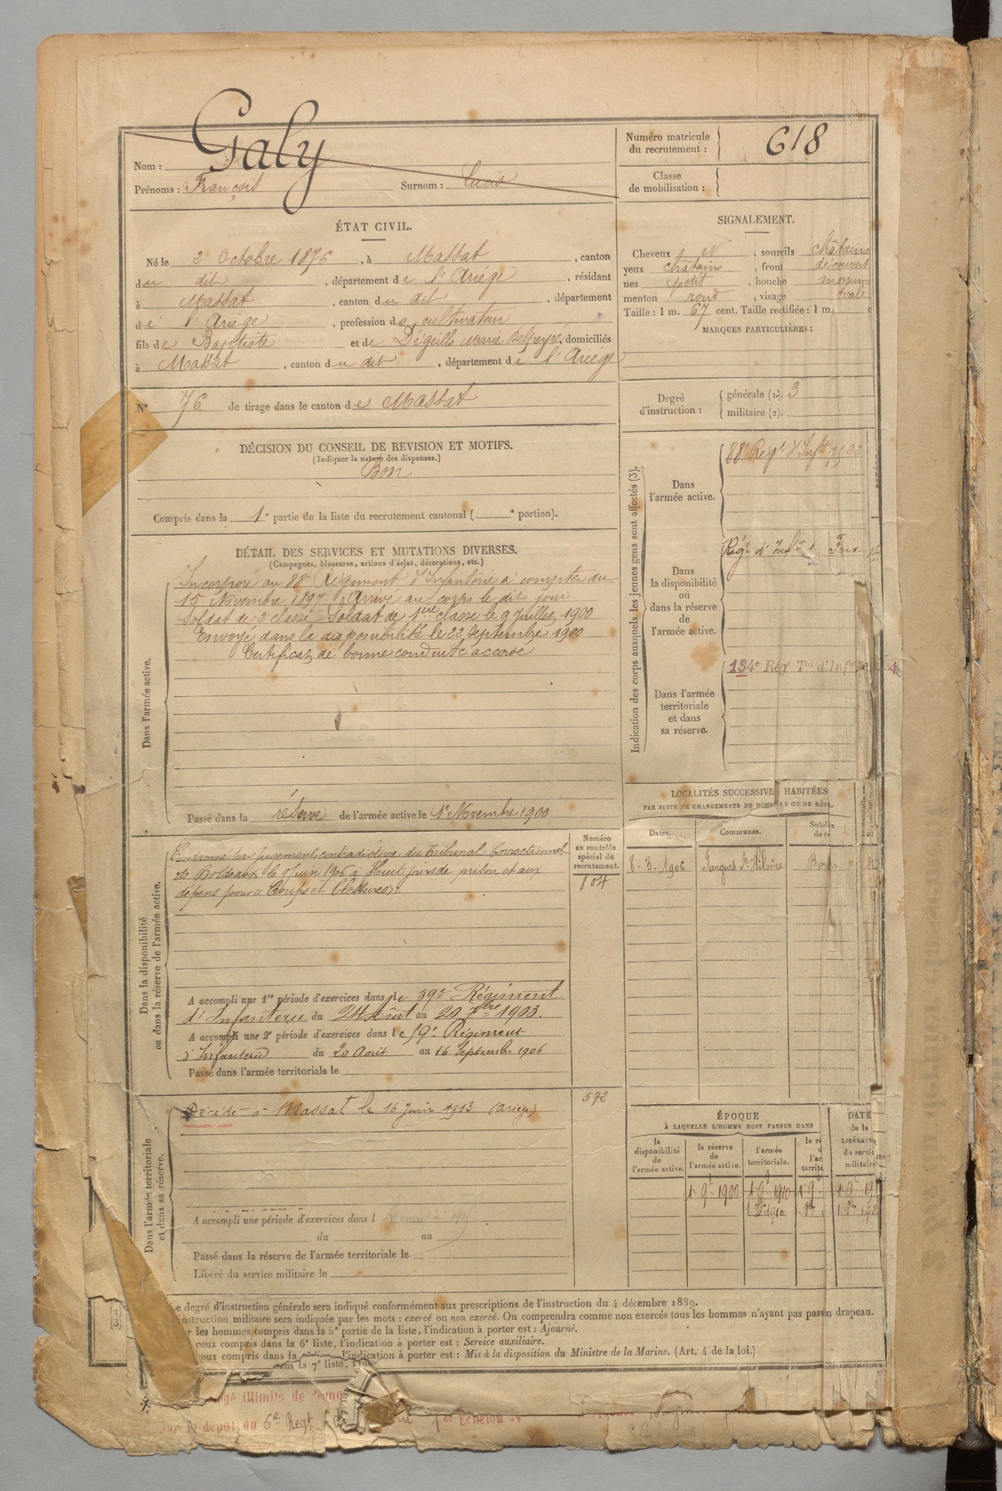 Nom : Galy
Prénoms : François Surnom :
Numéro matricule
du recrutement : 618
Classe
de mobilisation :
ÉTAT CIVIL.
Né le 2 Octobre 1876, à Massat, canton
du dit, département de l'Ariége, résidant
à Massat, canton du dit, département
de l'Ariége, profession de cultivateur
fils de Baptiste et de Dégeille Marie, domiciliés
à Massat, canton du dit, département de l'Ariége
N° 76 de tirage dans le canton de Massat
SIGNALEMENT.
Cheveux N, sourcils châtains
yeux châtains, front découvert
nez petit, bouche moyenne
menton rond, visage ovale
Taille : 1 m. 67 cent. Taille rectifiée : 1 m. c
MARQUES PARTICULIÈRES :
Degré
d'instruction : générale (1). 3
militaire (2).
DÉCISION DU CONSEIL DE REVISION ET MOTIFS.
(Indiquer la nature des dispenses.)
Bon
Compris dans la 1e partie de la liste du recrutement cantonal ( e portion).
DÉTAIL DES SERVICES ET MUTATIONS DIVERSES.
(Campagnes, blessures, actions d'éclat, décorations, etc.)
Dans l'armée active.
Incorporé au 88e Régiment d'Infanterie à compter du
15 Novembre 1897. Arrivé au corps le dit jour
Soldat de 2e classe. Soldat de 1ère classe le 9 Juillet 1900
Envoyé dans la disponibilité le 22 Septembre 1900
Certificat de bonne conduite accordé
Passé dans la réserve de l'armée active le 1er Novembre 1900
Indication des corps auxquels les jeunes gens sont affectés (3).
Dans
l'armée active.
88e Régt d'Infie
Dans
la disponibilité
ou
dans la réserve
de
l'armée active.
Régt d'Infie
Dans l'armée
territoriale
et dans
sa réserve.
134e Régt Tal d'Inf
LOCALITÉS SUCCESSIVE HABITÉES
PAR SUITE DE CHANGEMENTS DE DOM OU DE RÉSI
Dates. Communes.
8-3-1906
Dans la disponibilité
ou dans la réserve de l'armée active.
Numéro
au contrôle
spécial du
recrutement.
104
Condamné par jugement contradictoire du Tribunal Correctionnel
de Bordeaux le Juin 1906 à Huit jours de prison et aux
dépens pour Coups et blessures
A accompli une 1re période d'exercices dans le 59e Régiment
d'Infanterie du 24 Août au 20 7bre 1903.
A accompli une 2e période d'exercices dans le 59e Régiment
d'Infanterie du 20 Août au 16 Septembre 1906
Passé dans l'armée territoriale le
Dans l'armée territoriale
et dans sa réserve.
592
Décédé à Massat le 16 Juin 1913 (Ariège)
A accompli une période d'exercices dans l
du au
Passé dans la réserve de l'armée territoriale le
Libéré du service militaire le
ÉPOQUE
À LAQUELLE L'HOMME DOIT PASSER DANS
la
disponibilité
de
l'armée active.
la réserve
de
l'armée active.
l'armée
territoriale.
DATE
de la
LIBÉRATI
du servic
militaire
1900 1910
e degré d'instruction générale sera indiqué conformément aux prescriptions de l'instruction du 4 décembre 1889.
nstruction militaire sera indiquée par les mots : exercé ou non exercé. On comprendra comme non exercés tous les hommes n'ayant pas passé au drapeau.
r les hommes compris dans la 5e partie de la liste, l'indication à porter est : Ajourné.
ceux compris dans la 6e liste, l'indication à porter est : Service auxiliaire.
eux compris dans la l'indication à porter est : Mis à la disposition du Ministre de la Marine. (Art. 4 de la loi.)
la 7e liste,
6e Régt